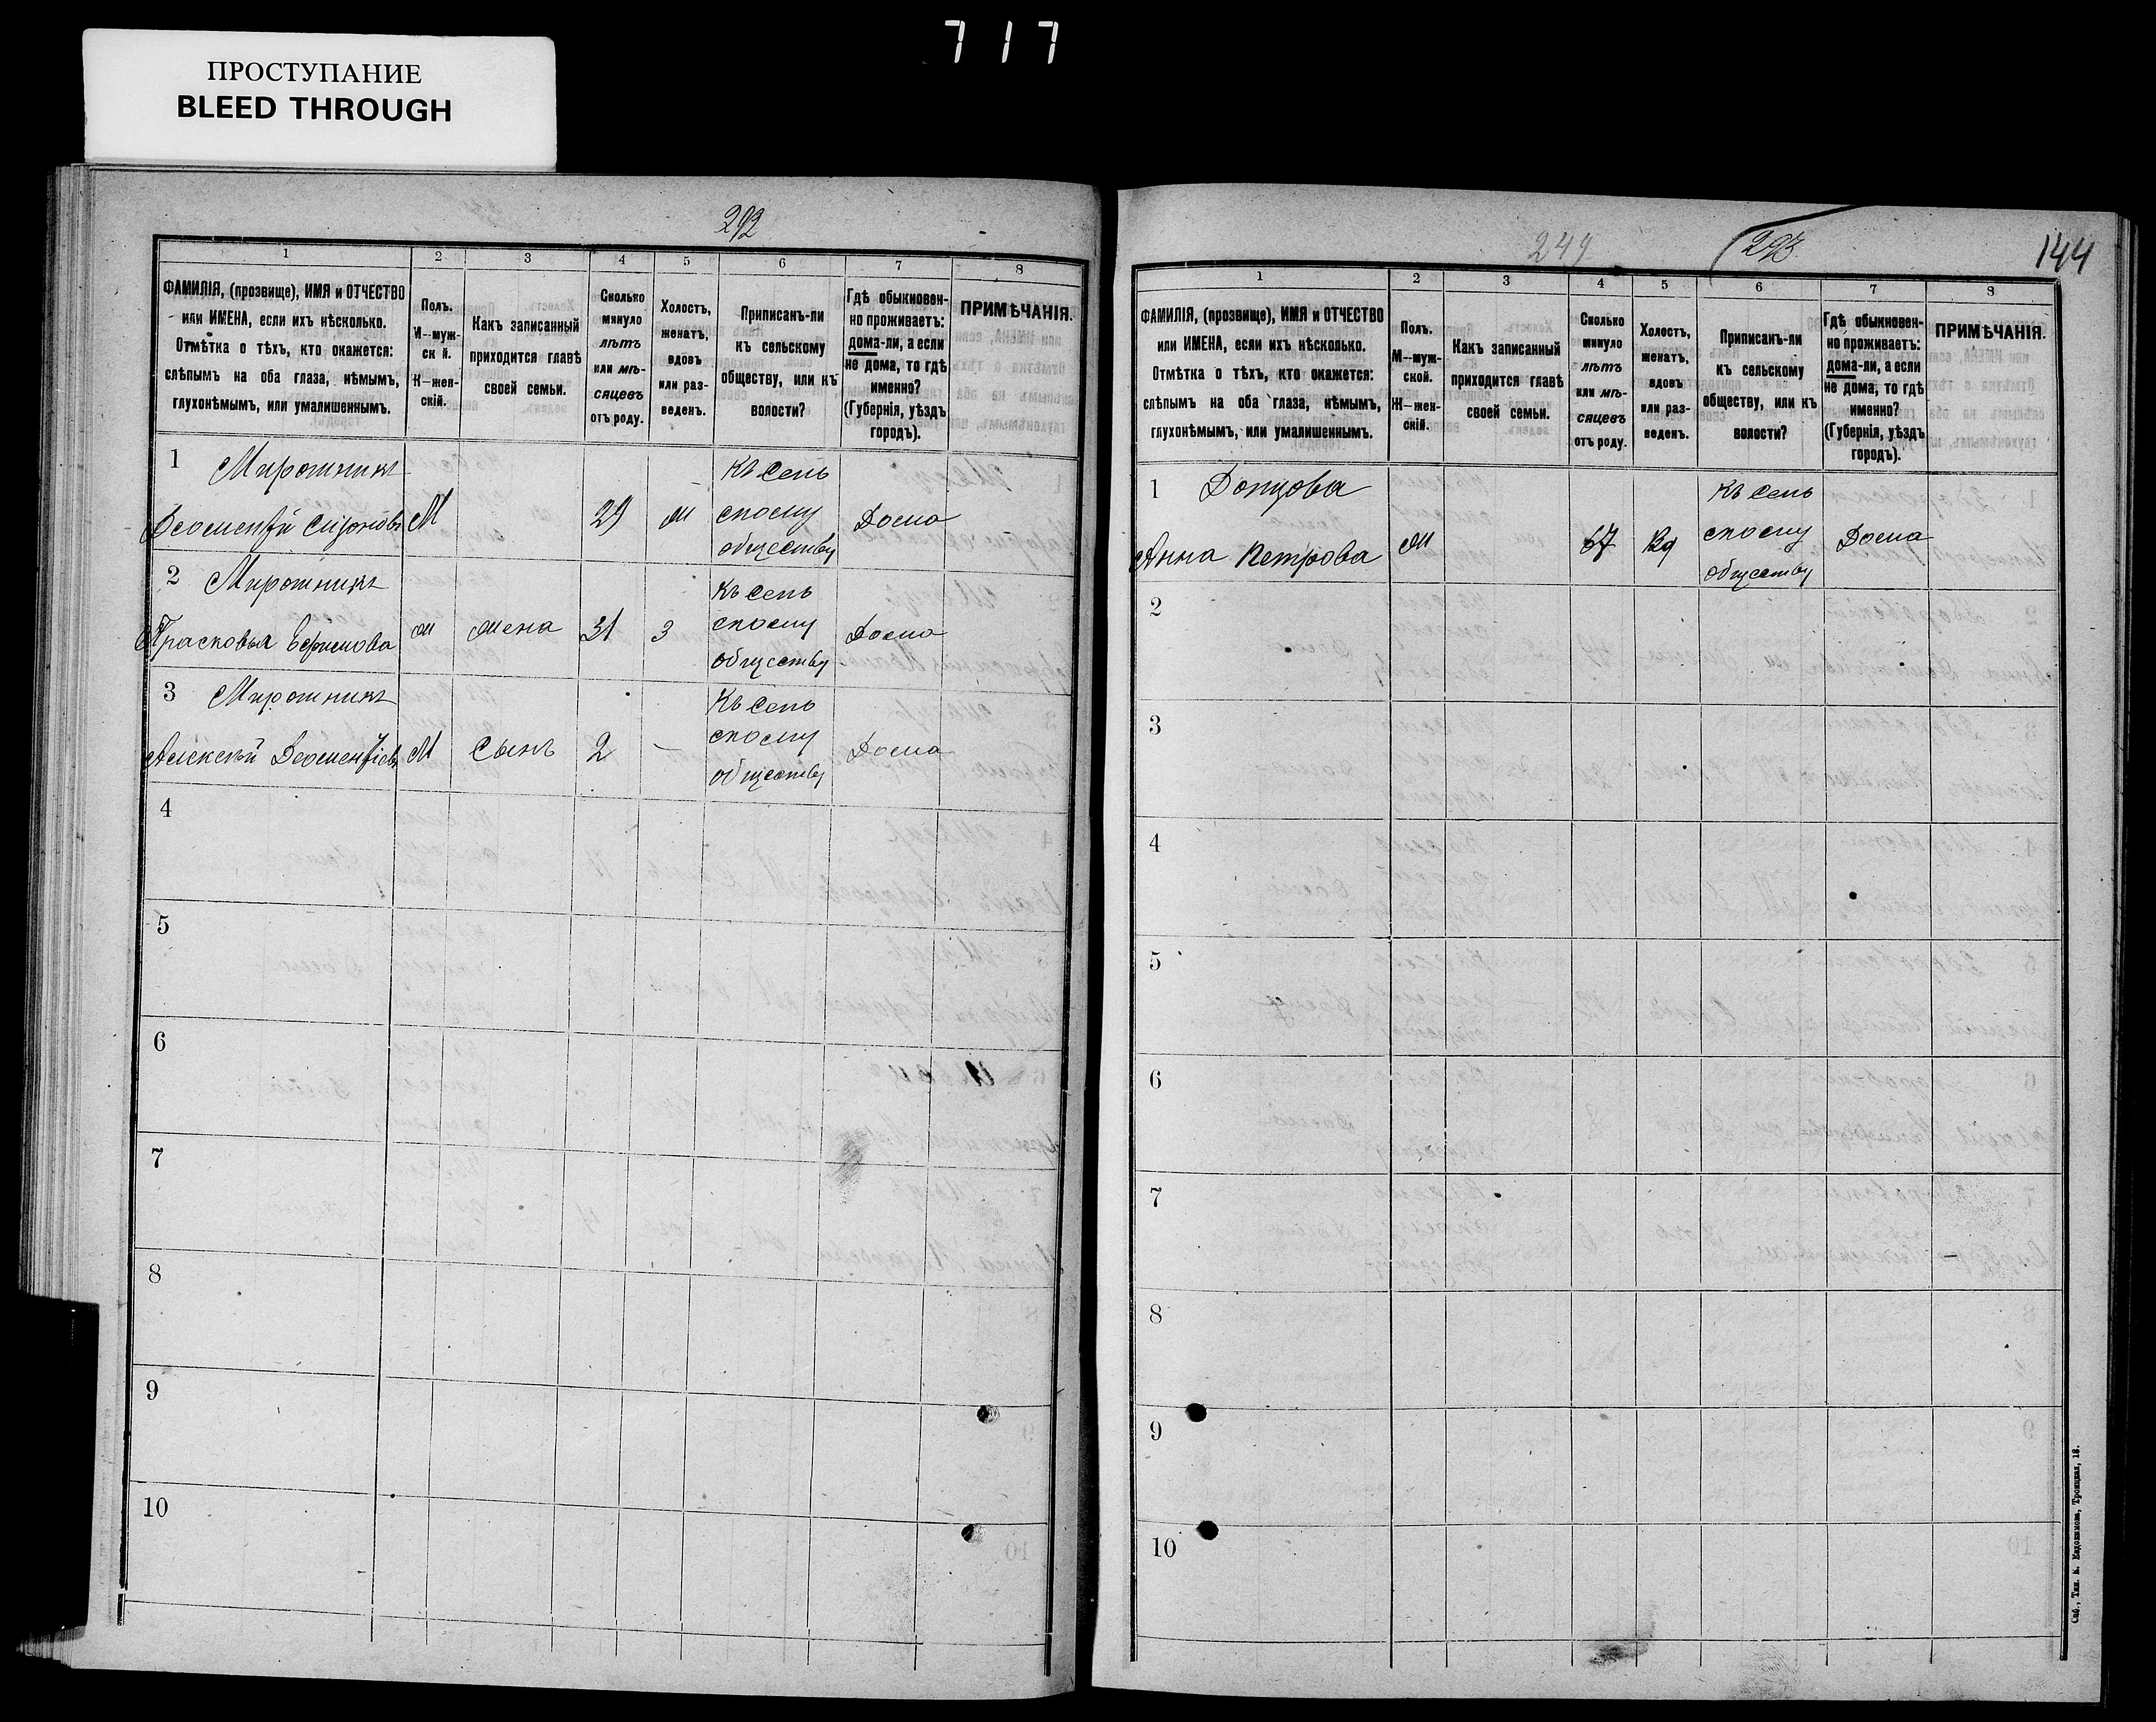 717
ПРОСТУПАНИЕ
BLEED THROUGH
292
1 2 3 4 5 6 7 8
ФАМИЛІЯ, (прозвище), ИМЯ и ОТЧЕСТВО
или ИМЕНА, если ихъ нѣсколько.
Отмѣтка о тѣхъ, кто окажется:
слѣпымъ на оба глаза, нѣмымъ,
глухонѣмымъ, или умалишеннымъ.
Полъ.
М—муж-
ск й.
Ж—жен-
скій.
Какъ записанный
приходится главѣ
своей семьи.
Сколько
минуло
лѣтъ
или мѣ-
сяцевъ
отъ роду.
Холостъ,
женатъ,
вдовъ
или раз-
веденъ.
Приписанъ-ли
къ сельскому
обществу, или къ
волости?
Гдѣ обыкновен-
но проживаетъ:
дома-ли, а если
не дома, то гдѣ
именно?
(Губернія, уѣздъ
городъ).
ПРИМѢЧАНІЯ.
1 Мирошникъ Къ сель
М 29 скому Дома
обществу
2 Мирошникъ Къ сель
Прасковья Ефимова жена 31 З скому Дома
обществу
3 Мирошникъ Къ сель
Алексѣй М Сынъ 2 — скому Дома
обществу
4
5
6
7
8
9
10
249 293 144
1 2 3 4 5 6 7 8
ФАМИЛІЯ, (прозвище), ИМЯ и ОТЧЕСТВО
или ИМЕНА, если ихъ нѣсколько.
Отмѣтка о тѣхъ, кто окажется:
слѣпымъ на оба глаза, нѣмымъ,
глухонѣмымъ, или умалишеннымъ.
Полъ.
М—муж-
ской.
Ж—жен-
скій.
Какъ записанный
приходится главѣ
своей семьи.
Сколько
минуло
лѣтъ
или мѣ-
сяцевъ
отъ роду.
Холостъ,
женатъ,
вдовъ
или раз-
веденъ.
Приписанъ-ли
къ сельскому
обществу, или къ
волости?
Гдѣ обыкновен-
но проживаетъ:
дома-ли, а если
не дома, то гдѣ
именно?
(Губернія, уѣздъ
городъ).
ПРИМѢЧАНІЯ.
1 Донцова Къ сель
Анна Петрова 67 Вд скому Дома
обществу
2
3
4
5
6
7
8
9
10
Спб., Тип. Евдокимова, Троицкая, 18.